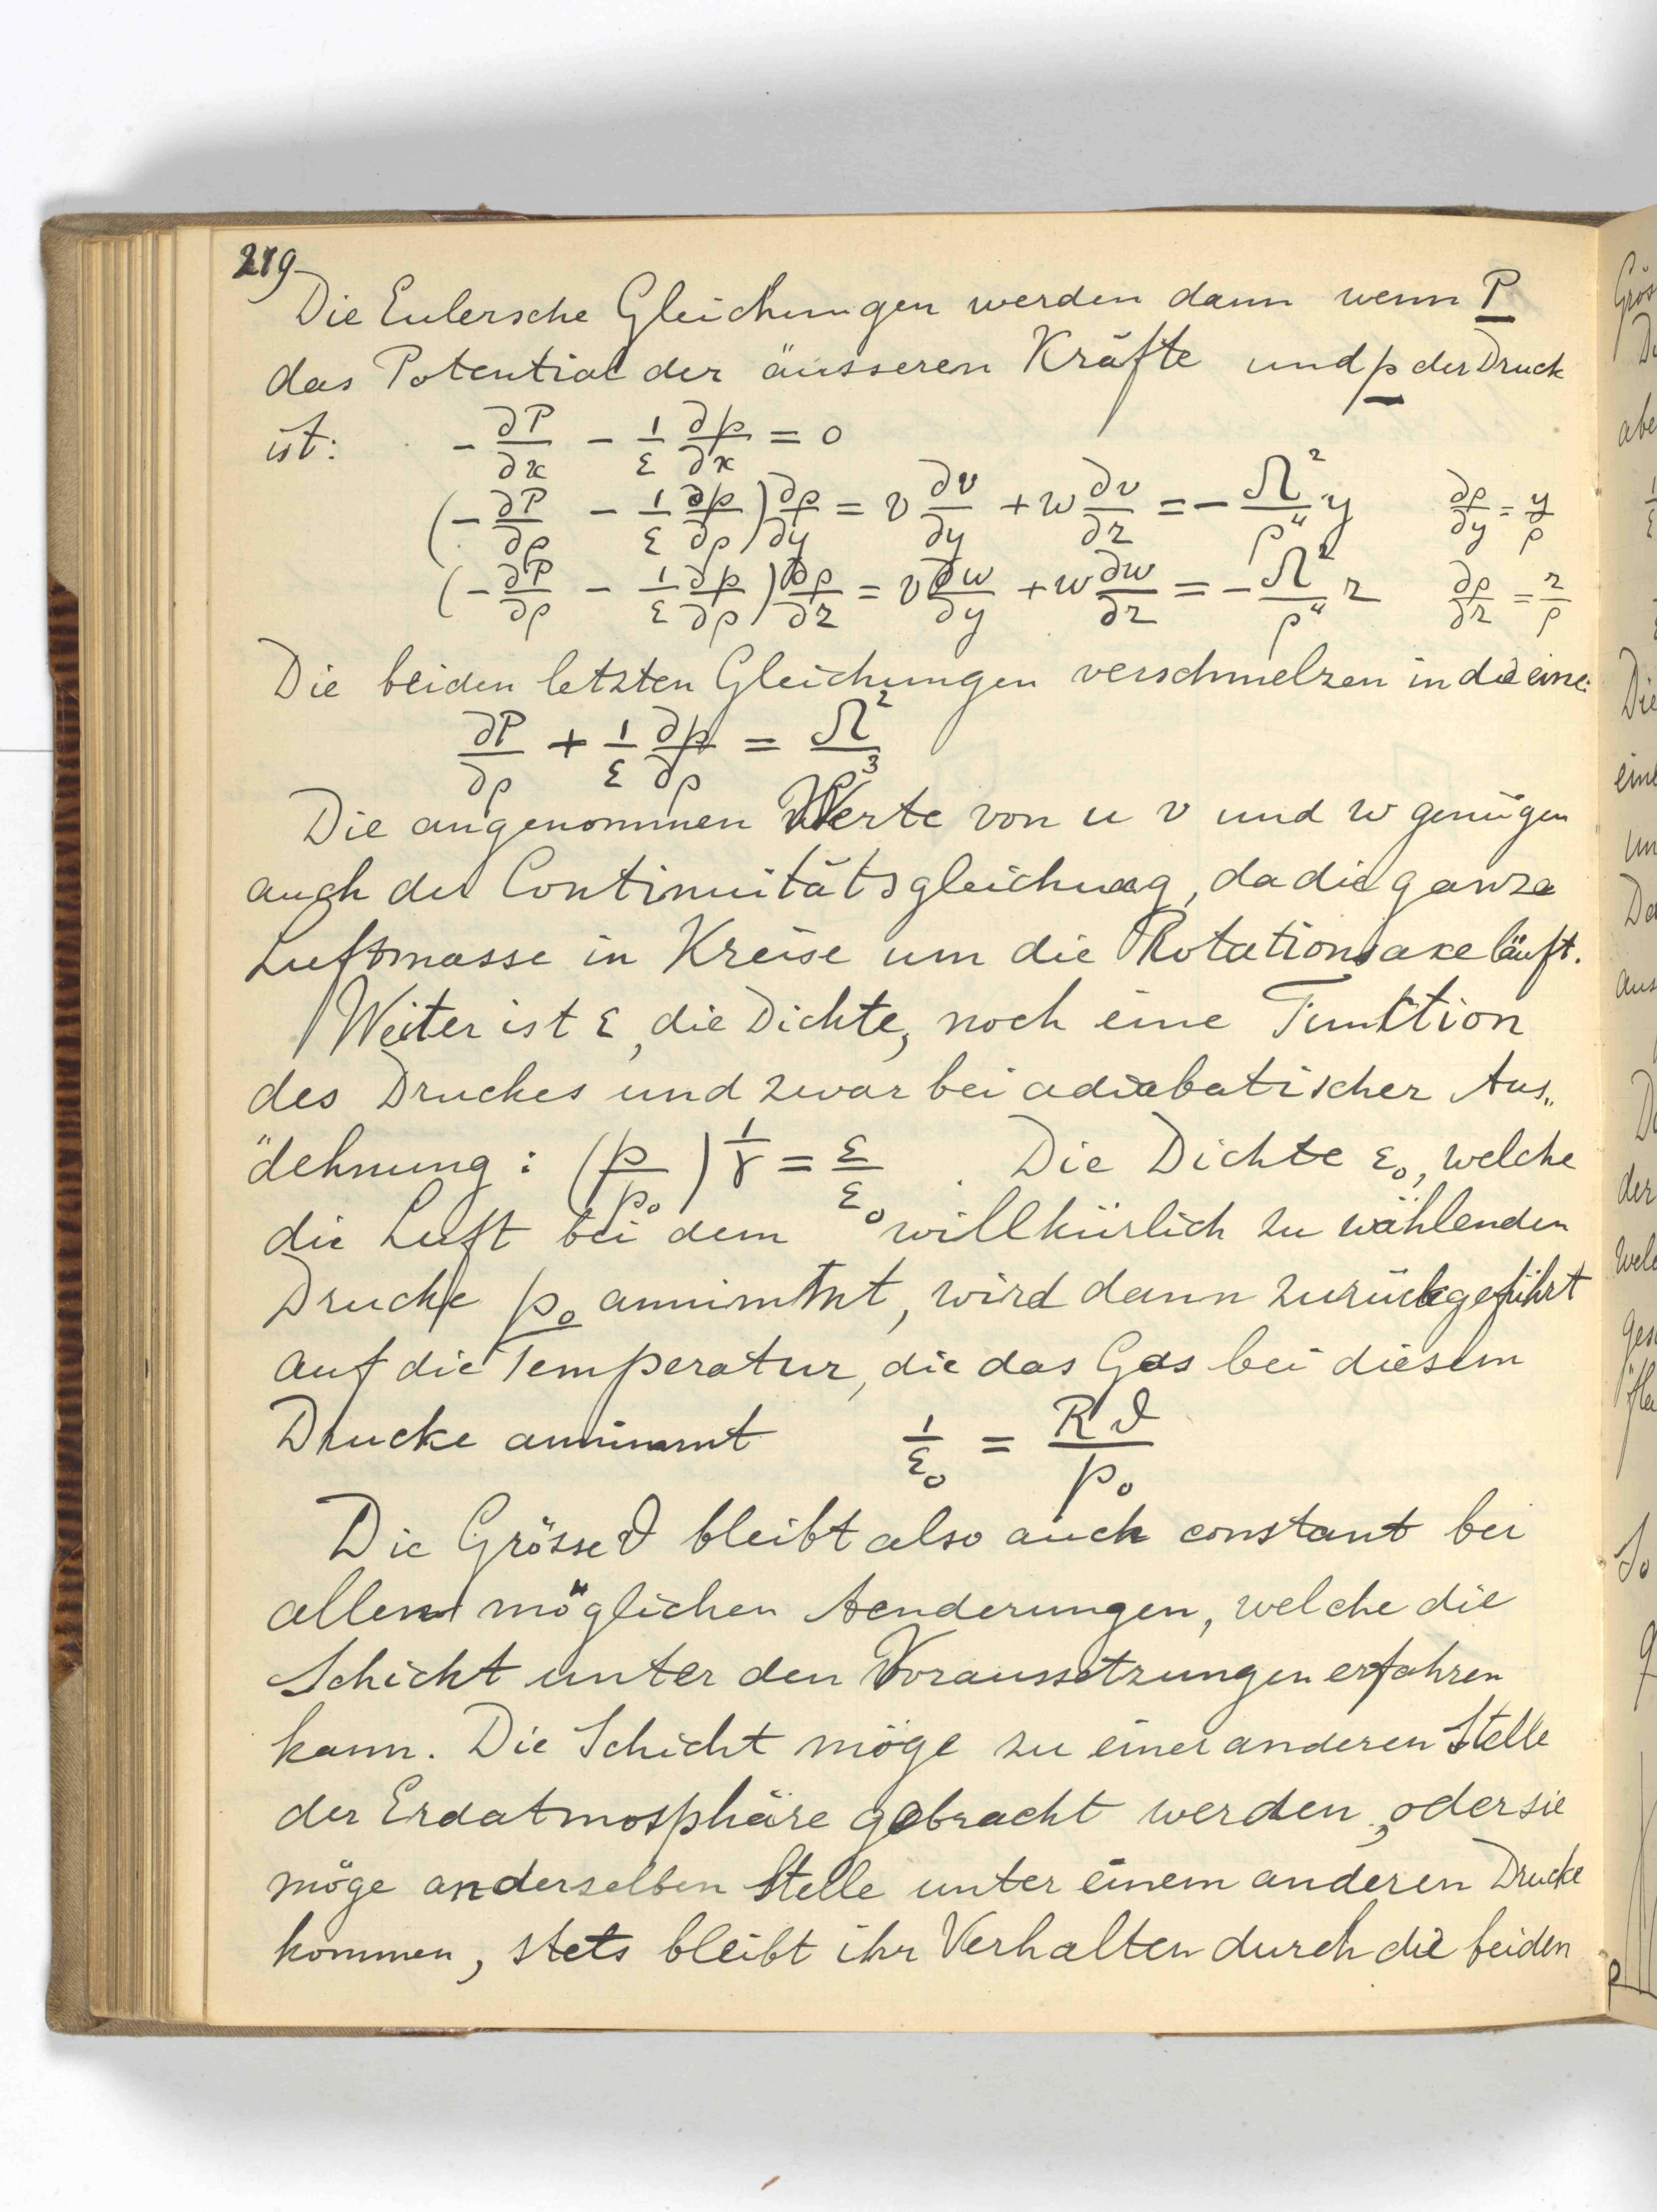 219
Die Eulersche Gleichungen werden dann wenn P
das Potential der äusseren Kräfte und p der Druck
ist: - ∂P/∂x - 1/ε ∂p/∂x = 0
(- ∂P/∂ρ - 1/ε ∂p/∂ρ) ∂ρ/∂y = v ∂v/∂y + w ∂v/∂z = - Ω²/ρ⁴ y ∂ρ/∂y = y/ρ
(- ∂P/∂ρ - 1/ε ∂p/∂ρ) ∂ρ/∂z = v ∂w/∂y + w ∂w/∂z = - Ω²/ρ⁴ z ∂ρ/∂z = z/ρ
Die beiden letzten Gleichungen verschmelzen in die eine:
∂P/∂ρ + 1/ε ∂p/∂ρ = Ω²/ρ³
Die angenommen Werte von u v und w genügen
auch der Continuitätsgleichung, da die ganze
Luftmasse in Kreise um die Rotationsaxe läuft.
Weiter ist ε, die Dichte, noch eine Funktion
des Druckes und zwar bei adiabatischer Aus„
"dehnung : (p/p₀)^1/γ = ε/ε₀ . Die Dichte ε₀, welche
die Luft bei dem willkürlich zu wählenden
Drucke p₀ annimmt, wird dann zurückgeführt
auf die Temperatur, die das Gas bei diesem
Drucke annimmt 1/ε₀ = Rϑ/p₀
Die Grösse ϑ bleibt also auch constant bei
allen möglichen Aenderungen, welche die
Schicht unter den Voraussetzungen erfahren
kann. Die Schicht möge zu einer anderen Stelle
der Erdatmosphäre gebracht werden, oder sie
möge an derselben Stelle unter einem anderen Drucke
kommen, stets bleibt ihr Verhalten durch die beiden